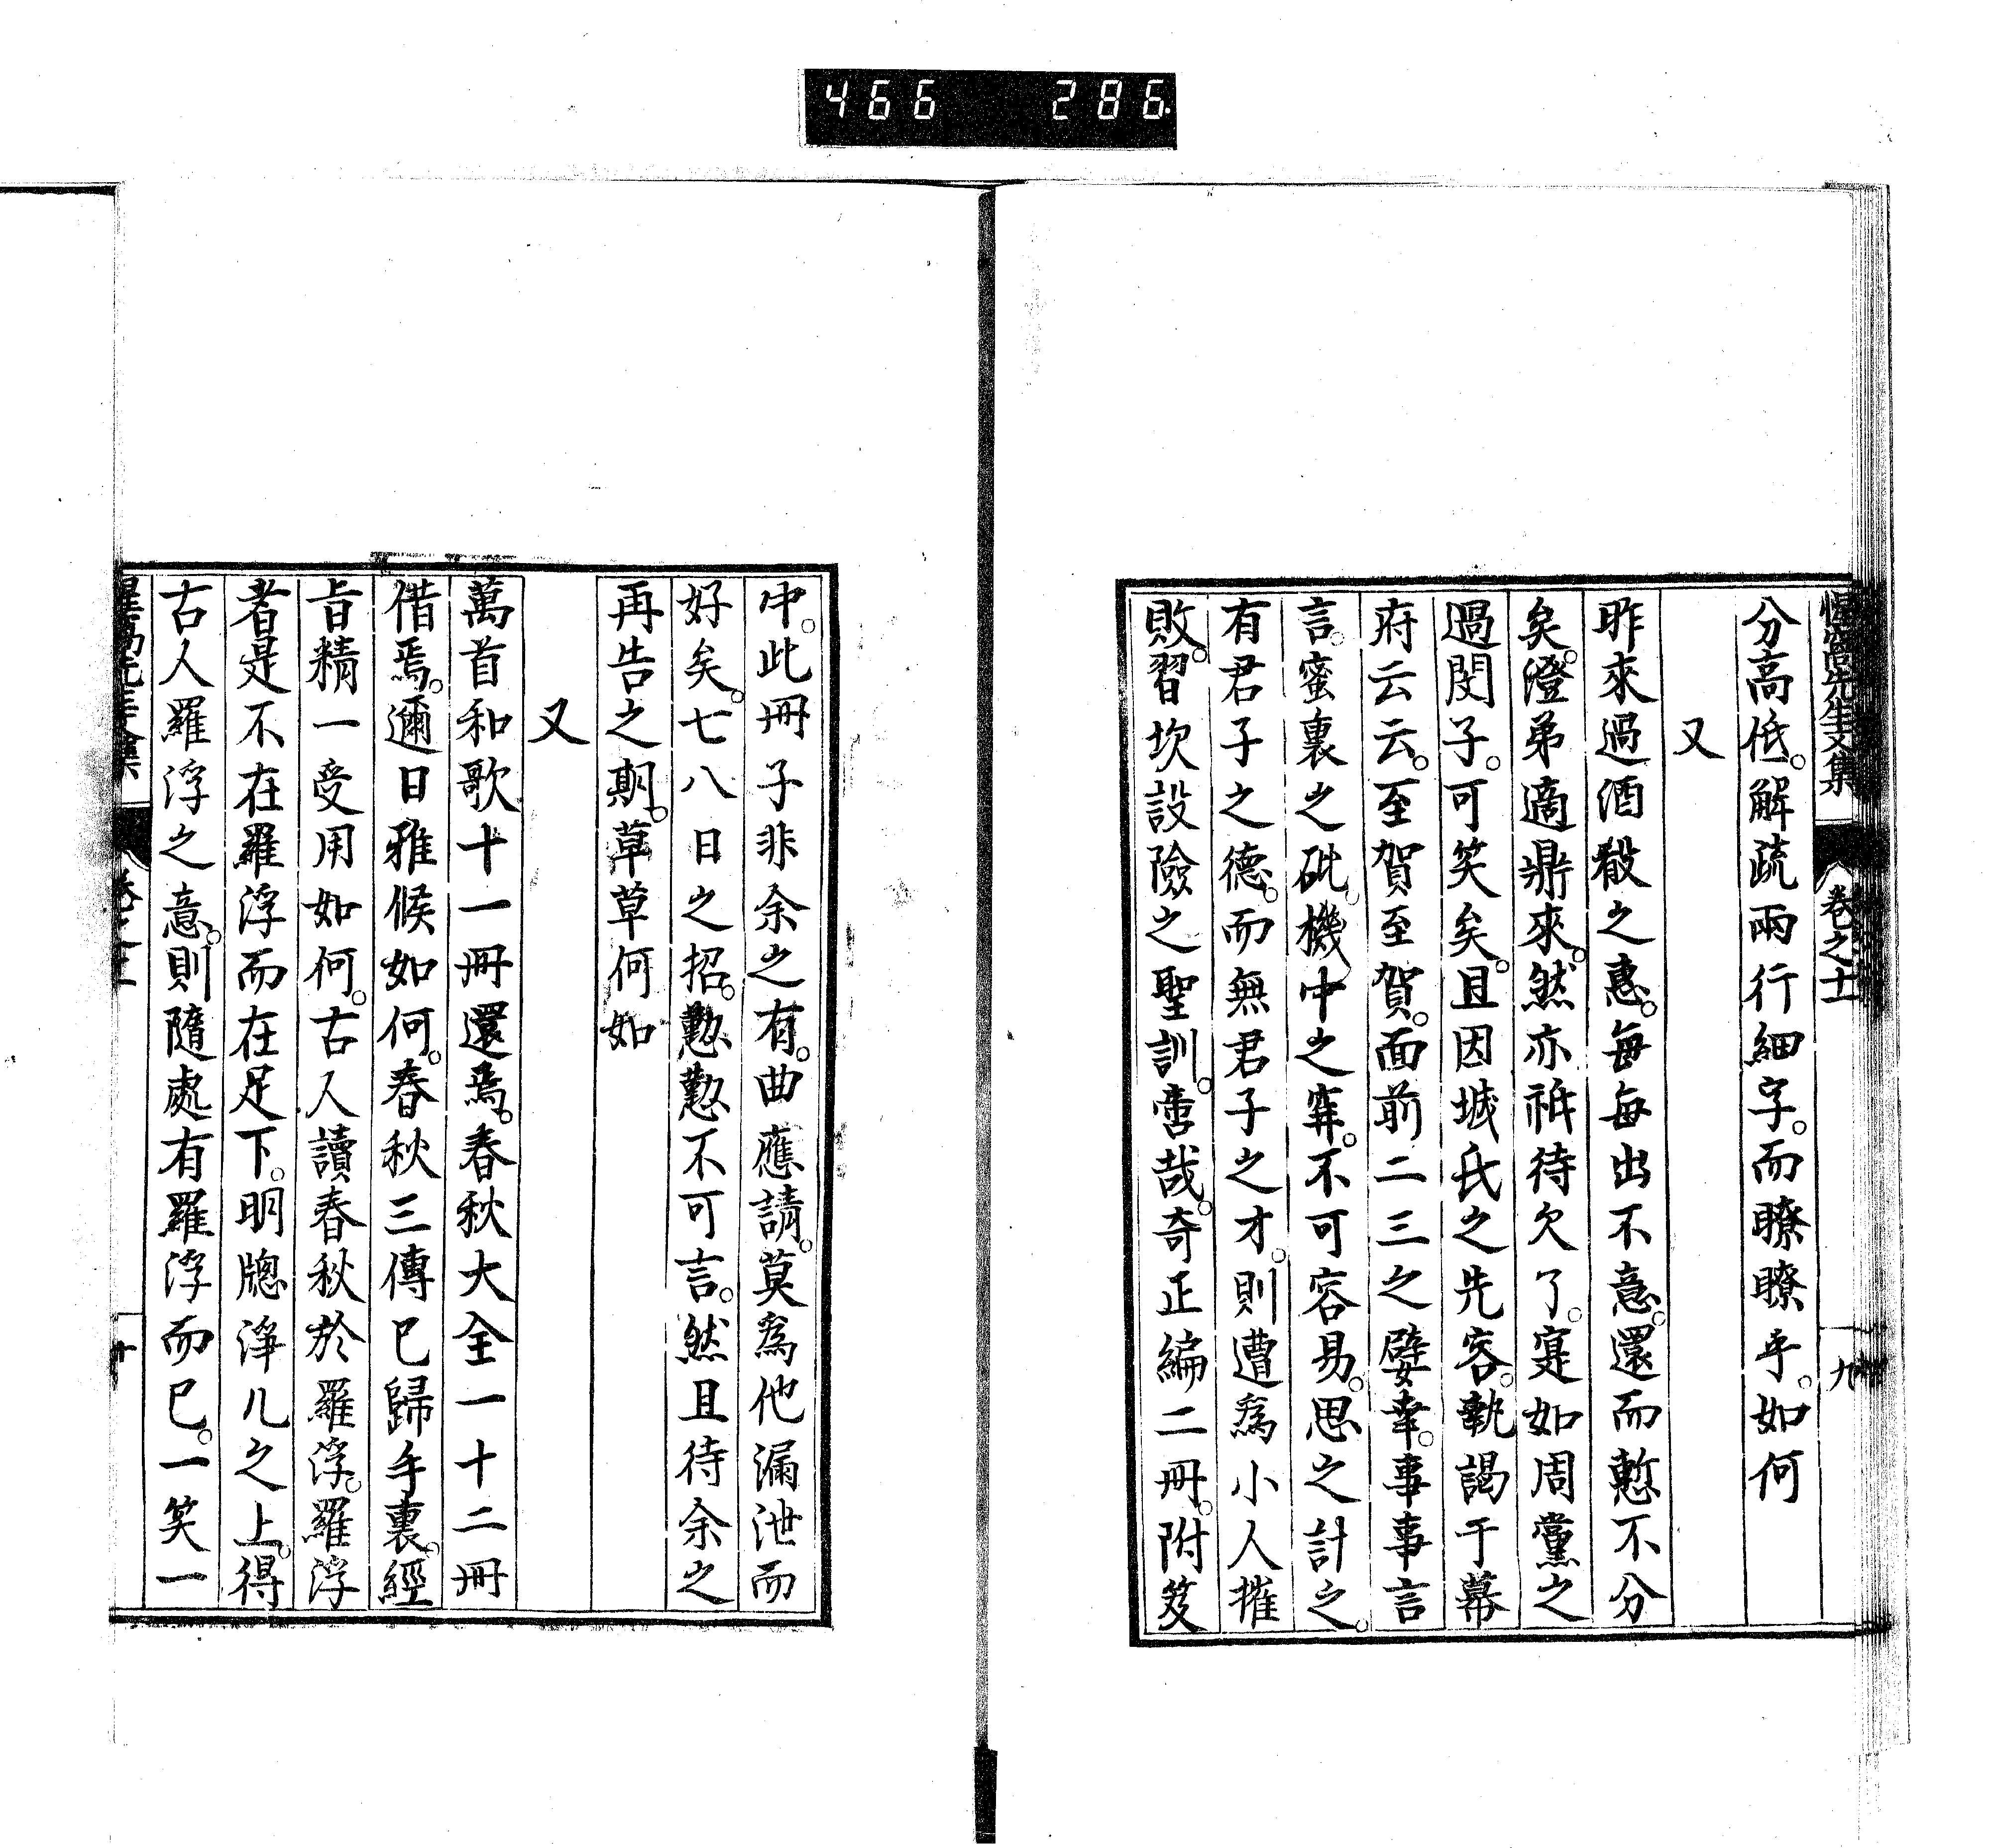 466 286
惺窩先生文集 卷之十 九
分高低。解疏兩行細字。而瞭瞭乎。如何
又
昨來過酒殽之惠。每每出不意。還而慙不分
矣。澄弟適鼎來。然亦祇待欠了。寔如周黨之
過閔子。可笑矣。且因城氏之先容。執謁于幕
府云云。至賀至賀。面前二三之嬖幸。事事言
言。蜜裏之砒。機中之穽。不可容易。思之計之。
有君子之德。而無君子之才。則遭爲小人摧
敗。習坎設險之聖訓。啻哉。奇正編二冊。附笈
中。此冊子非余之有。曲應請。莫爲他漏泄而
好矣。七八日之招。懃懃不可言。然且待余之
再告之期。草草何如
又
萬首和歌十一冊還焉。春秋大全一十二冊
借焉。邇日雅候如何。春秋三傳已歸手裏。經
旨精一受用如何。古人讀春秋於羅浮。羅浮
者是不在羅浮而在足下。明牕淨几之上。得
古人羅浮之意。則隨處有羅浮而已。一笑一